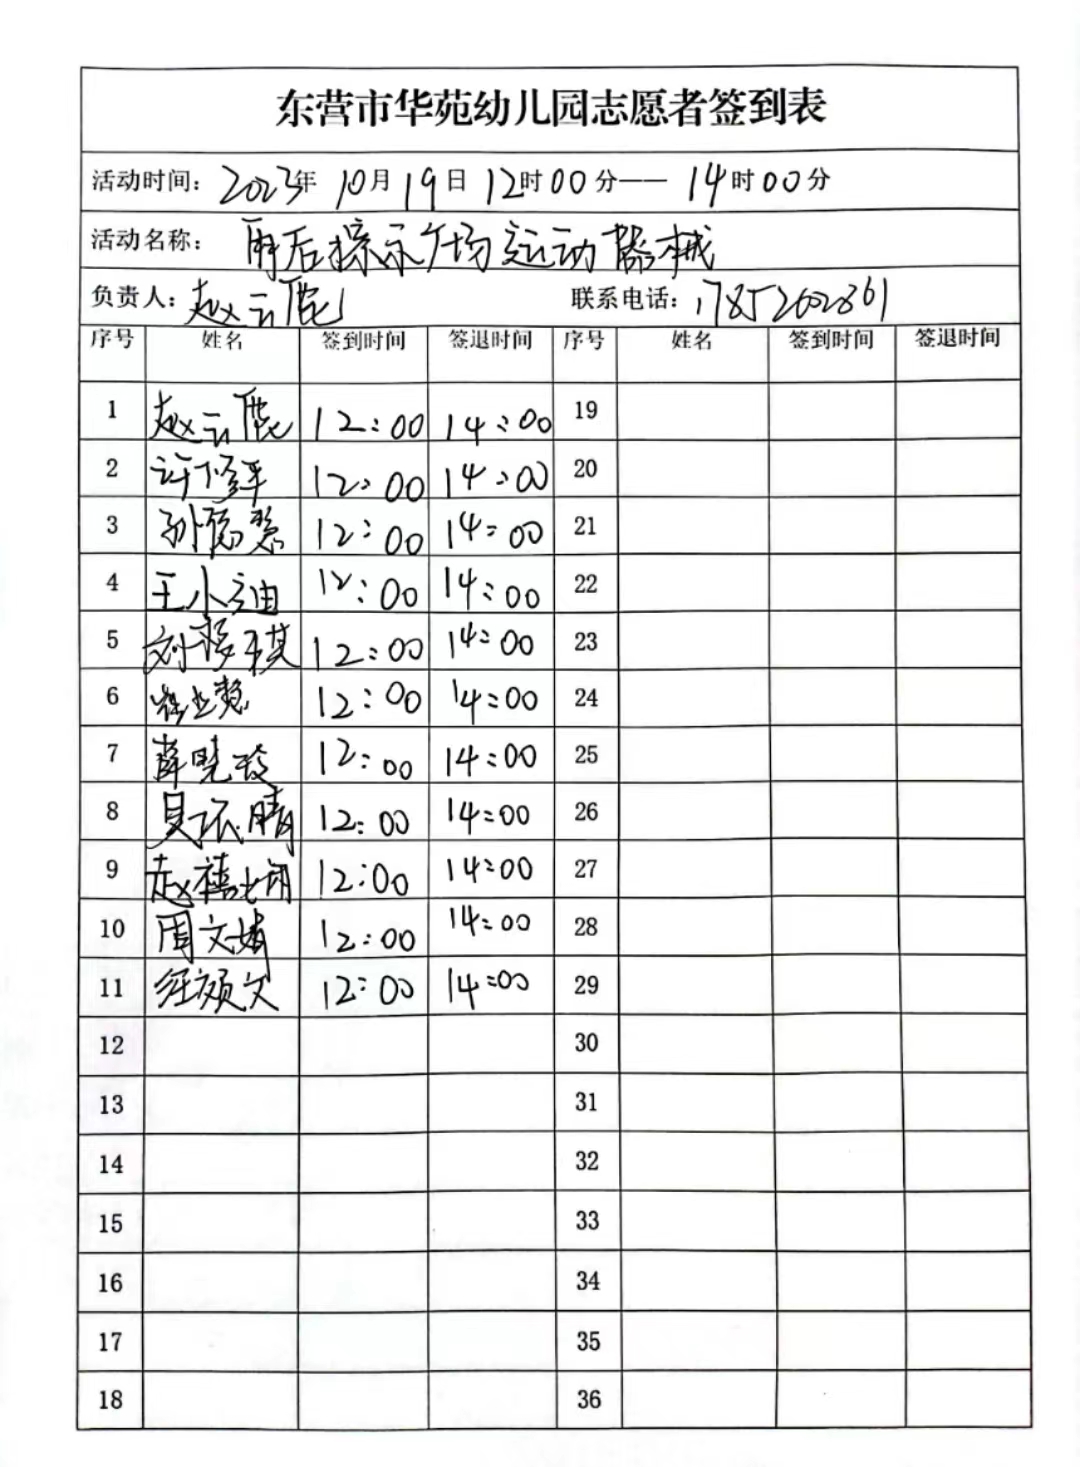 东营市华苑幼儿园志愿者签到表
活动时间：2023年 10月 19日 12时00分—— 14时00分
活动名称： 雨后擦示广场运动器械
负责人：赵云 联系电话：
序号 姓名 签到时间 签退时间 序号 姓名 签到时间 签退时间
1 赵云 12:00 14:00 19
2 许 12:00 14:00 20
3 孙 慧 12:00 14:00 21
4 王小迪 12:00 14:00 22
5 刘 琪 12:00 14:00 23
6 慧 12:00 14:00 24
7 薛晓 12:00 14:00 25
8 晴 12:00 14:00 26
9 赵 12:00 14:00 27
10 周文婧 12:00 14:00 28
11 12:00 14:00 29
12 30
13 31
14 32
15 33
16 34
17 35
18 36